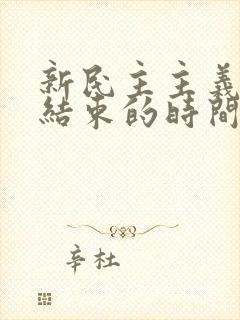 新民主主義
結束的時間
辛杜